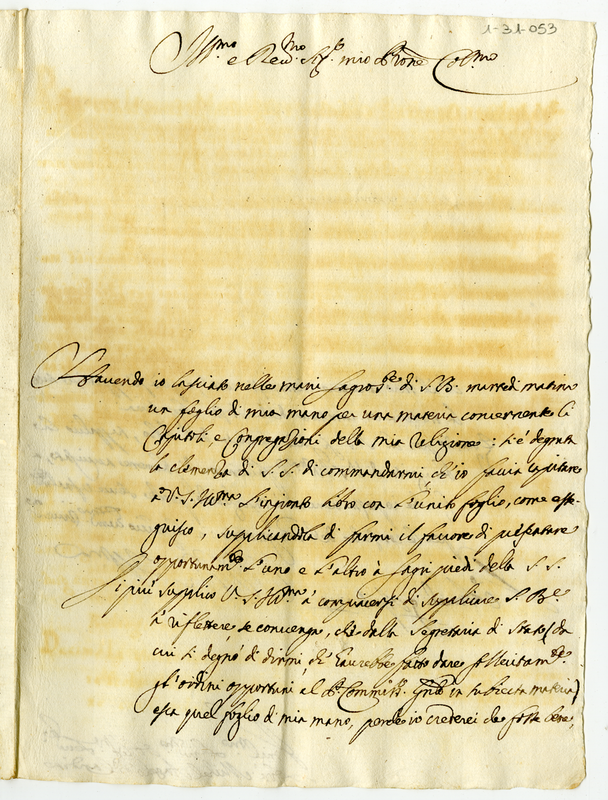 1-31-053
Ill.mo e Rev.mo Sig.r mio P̄rone Col.mo
Hauendo io lasciato nelle mani sagros.te di S. B. martedi matina
un foglio di mia mano per una materia concernente li
Capitoli e Congregazioni della mia Religione: si è degnata
la clemenza di S. S. di commandarmi, ch'io facia capitare
a V. S. Ill.ma l'ingionto libro con l'unito foglio, come esse-
guisco, supplicandola di farmi il fauore di presentare
opportunam.te l'uno e l'altro à sagri piedi della S. S.
di più supplico V. S. Ill.ma à compiacersi di supplicare S. B.e
à riflettere, se conuenga, che dalla Segretaria di Stato (da
cui si degnò di dirmi, ch'haurebbe fatto dare sollecitam.te
gl'ordini opportuni al P. Commiss.
in materia)
esca quel foglio di mia mano, perche io crederei che fosse bene,